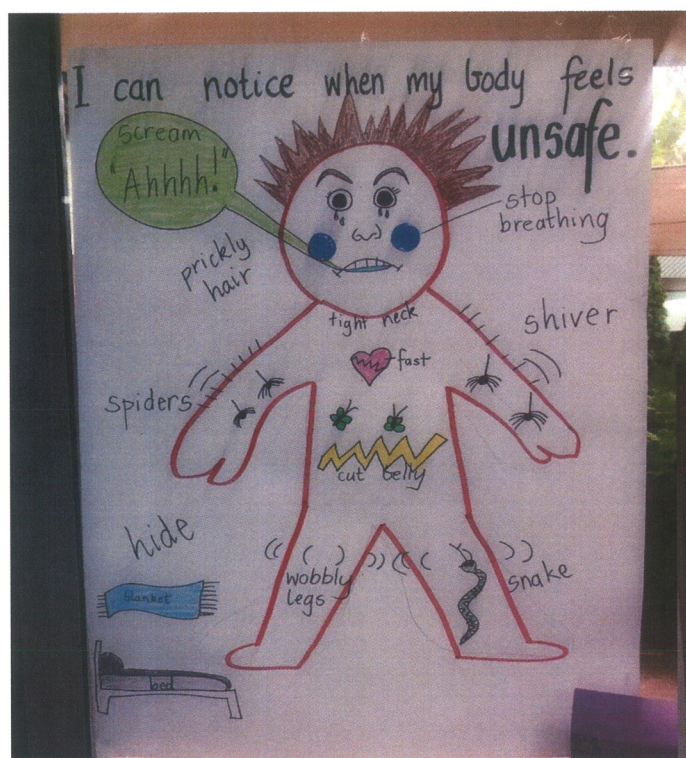 I can notice when my body feels
unsafe.
Scream
"Ahhhh!"
stop
breathing
prickly
hair
tight neck
shiver
fast
spiders
cut belly
hide
wobbly
legs
snake
blanket
bed